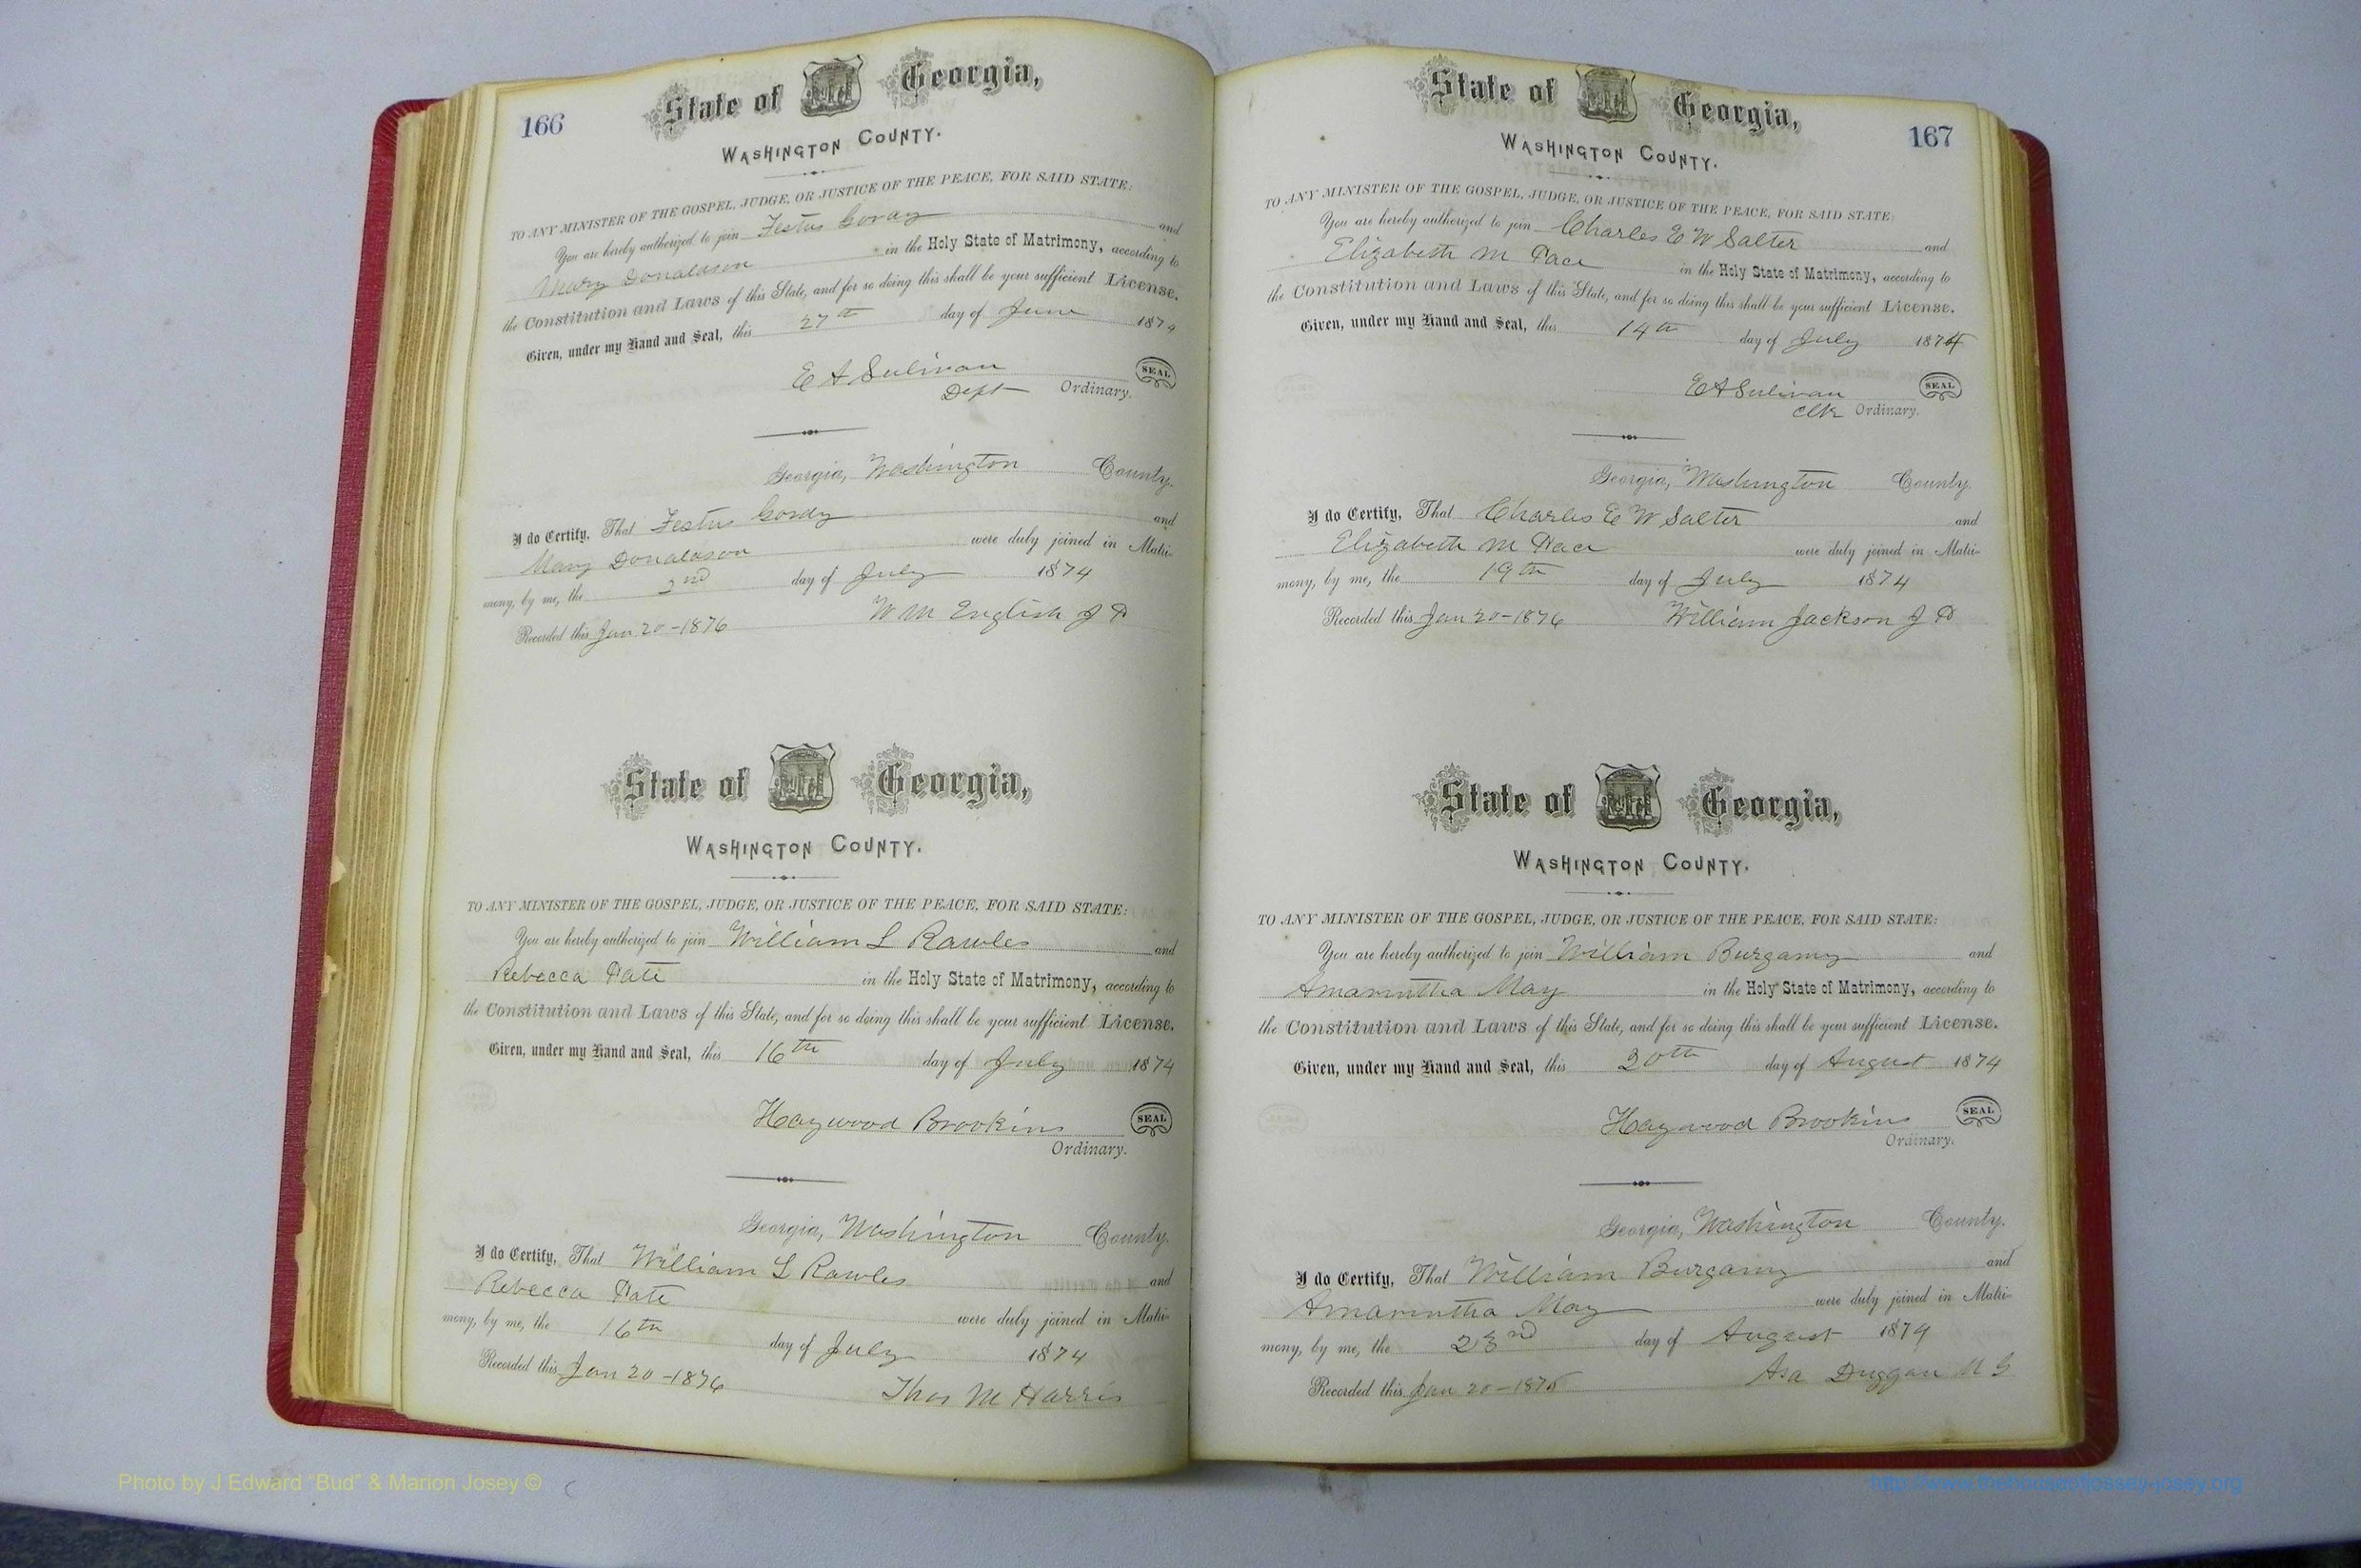 166
State of Georgia,
WASHINGTON COUNTY.
TO ANY MINISTER OF THE GOSPEL, JUDGE, OR JUSTICE OF THE PEACE, FOR SAID STATE:
You are hereby authorized to join Festus Gordy and
Mary Donaldson in the Holy State of Matrimony, according to
the Constitution and Laws of this State, and for so doing this shall be your sufficient License.
Given, under my Hand and Seal, this 27th day of June 1874
E A Sulivan SEAL
Dept Ordinary.
Georgia, Washington County.
I do Certify, That Festus Gordy and
Mary Donaldson were duly joined in Matri-
mony, by me, the 2nd day of July 1874
Recorded this Jan 20-1876 W M English J P
State of Georgia,
WASHINGTON COUNTY.
TO ANY MINISTER OF THE GOSPEL, JUDGE, OR JUSTICE OF THE PEACE, FOR SAID STATE:
You are hereby authorized to join William L Rawles and
Rebecca Pate in the Holy State of Matrimony, according to
the Constitution and Laws of this State, and for so doing this shall be your sufficient License.
Given, under my Hand and Seal, this 16th day of July 1874
Haywood Brookins SEAL
Ordinary.
Georgia, Washington County.
I do Certify, That William L Rawles and
Rebecca Pate were duly joined in Matri-
mony, by me, the 16th day of July 1874
Recorded this Jan 20-1876 Thos M Harris
167
State of Georgia,
WASHINGTON COUNTY.
TO ANY MINISTER OF THE GOSPEL, JUDGE, OR JUSTICE OF THE PEACE, FOR SAID STATE:
You are hereby authorized to join Charles E W Salter and
Elizabeth M Pace in the Holy State of Matrimony, according to
the Constitution and Laws of this State, and for so doing this shall be your sufficient License.
Given, under my Hand and Seal, this 14th day of July 1874
E A Sulivan SEAL
Clk Ordinary.
Georgia, Washington County.
I do Certify, That Charles E W Salter and
Elizabeth M Pace were duly joined in Matri-
mony, by me, the 19th day of July 1874
Recorded this Jan 20-1876 William Jackson J P
State of Georgia,
WASHINGTON COUNTY.
TO ANY MINISTER OF THE GOSPEL, JUDGE, OR JUSTICE OF THE PEACE, FOR SAID STATE:
You are hereby authorized to join William Burgamy and
Amarintha May in the Holy State of Matrimony, according to
the Constitution and Laws of this State, and for so doing this shall be your sufficient License.
Given, under my Hand and Seal, this 20th day of August 1874
Haywood Brookins SEAL
Ordinary.
Georgia, Washington County.
I do Certify, That William Burgamy and
Amarintha May were duly joined in Matri-
mony, by me, the 23rd day of August 1874
Recorded this Jan 20-1876 Asa Duggan M G
Photo by J Edward "Bud" & Marion Josey ©